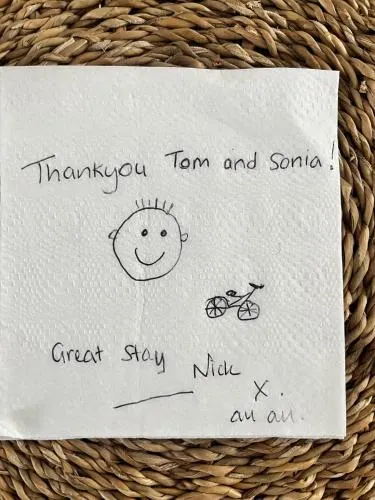 Thankyou Tom and Sonia!
Great Stay
Nick
X.
au au.